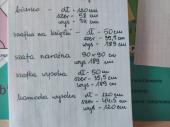 biurko - dł - 120 cm
szer - 58 cm
wys - 74 cm
szafka na książki - dł - 50 cm
szer - 39,5 cm
wys - 189 cm
szafa narożna 90x90 cm
wys - 189 cm
szafka wysoka dł - 50 cm
szer - 39,5 cm
wys - 189 cm
komoda wysoka - dł - 120 cm
szer - 40,5 cm
wys - 120 cm